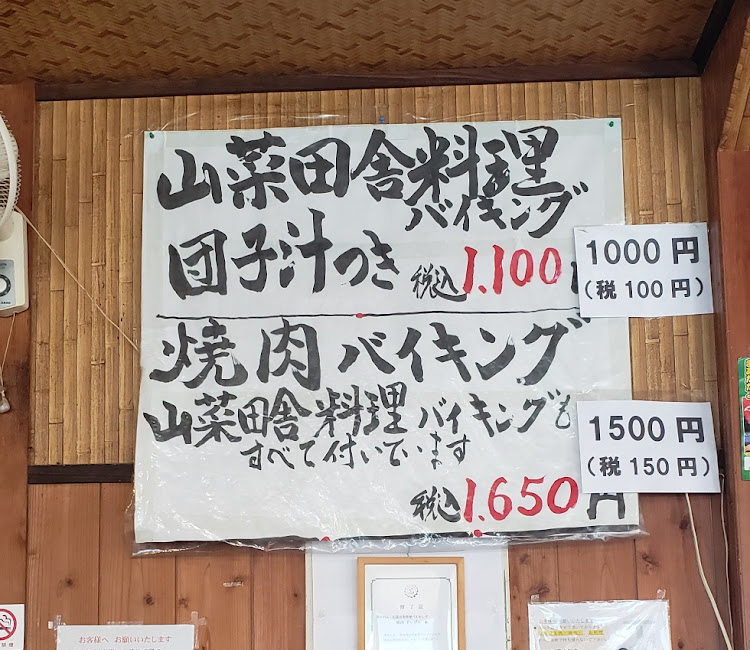 山菜田舎料理
バイキング
団子汁つき 税込1.100
1000円
(税100円)
焼肉バイキング
山菜田舎料理バイキングも
すべて付いています
1500円
(税150円)
税込1.650円
お客様へ お願いいたします